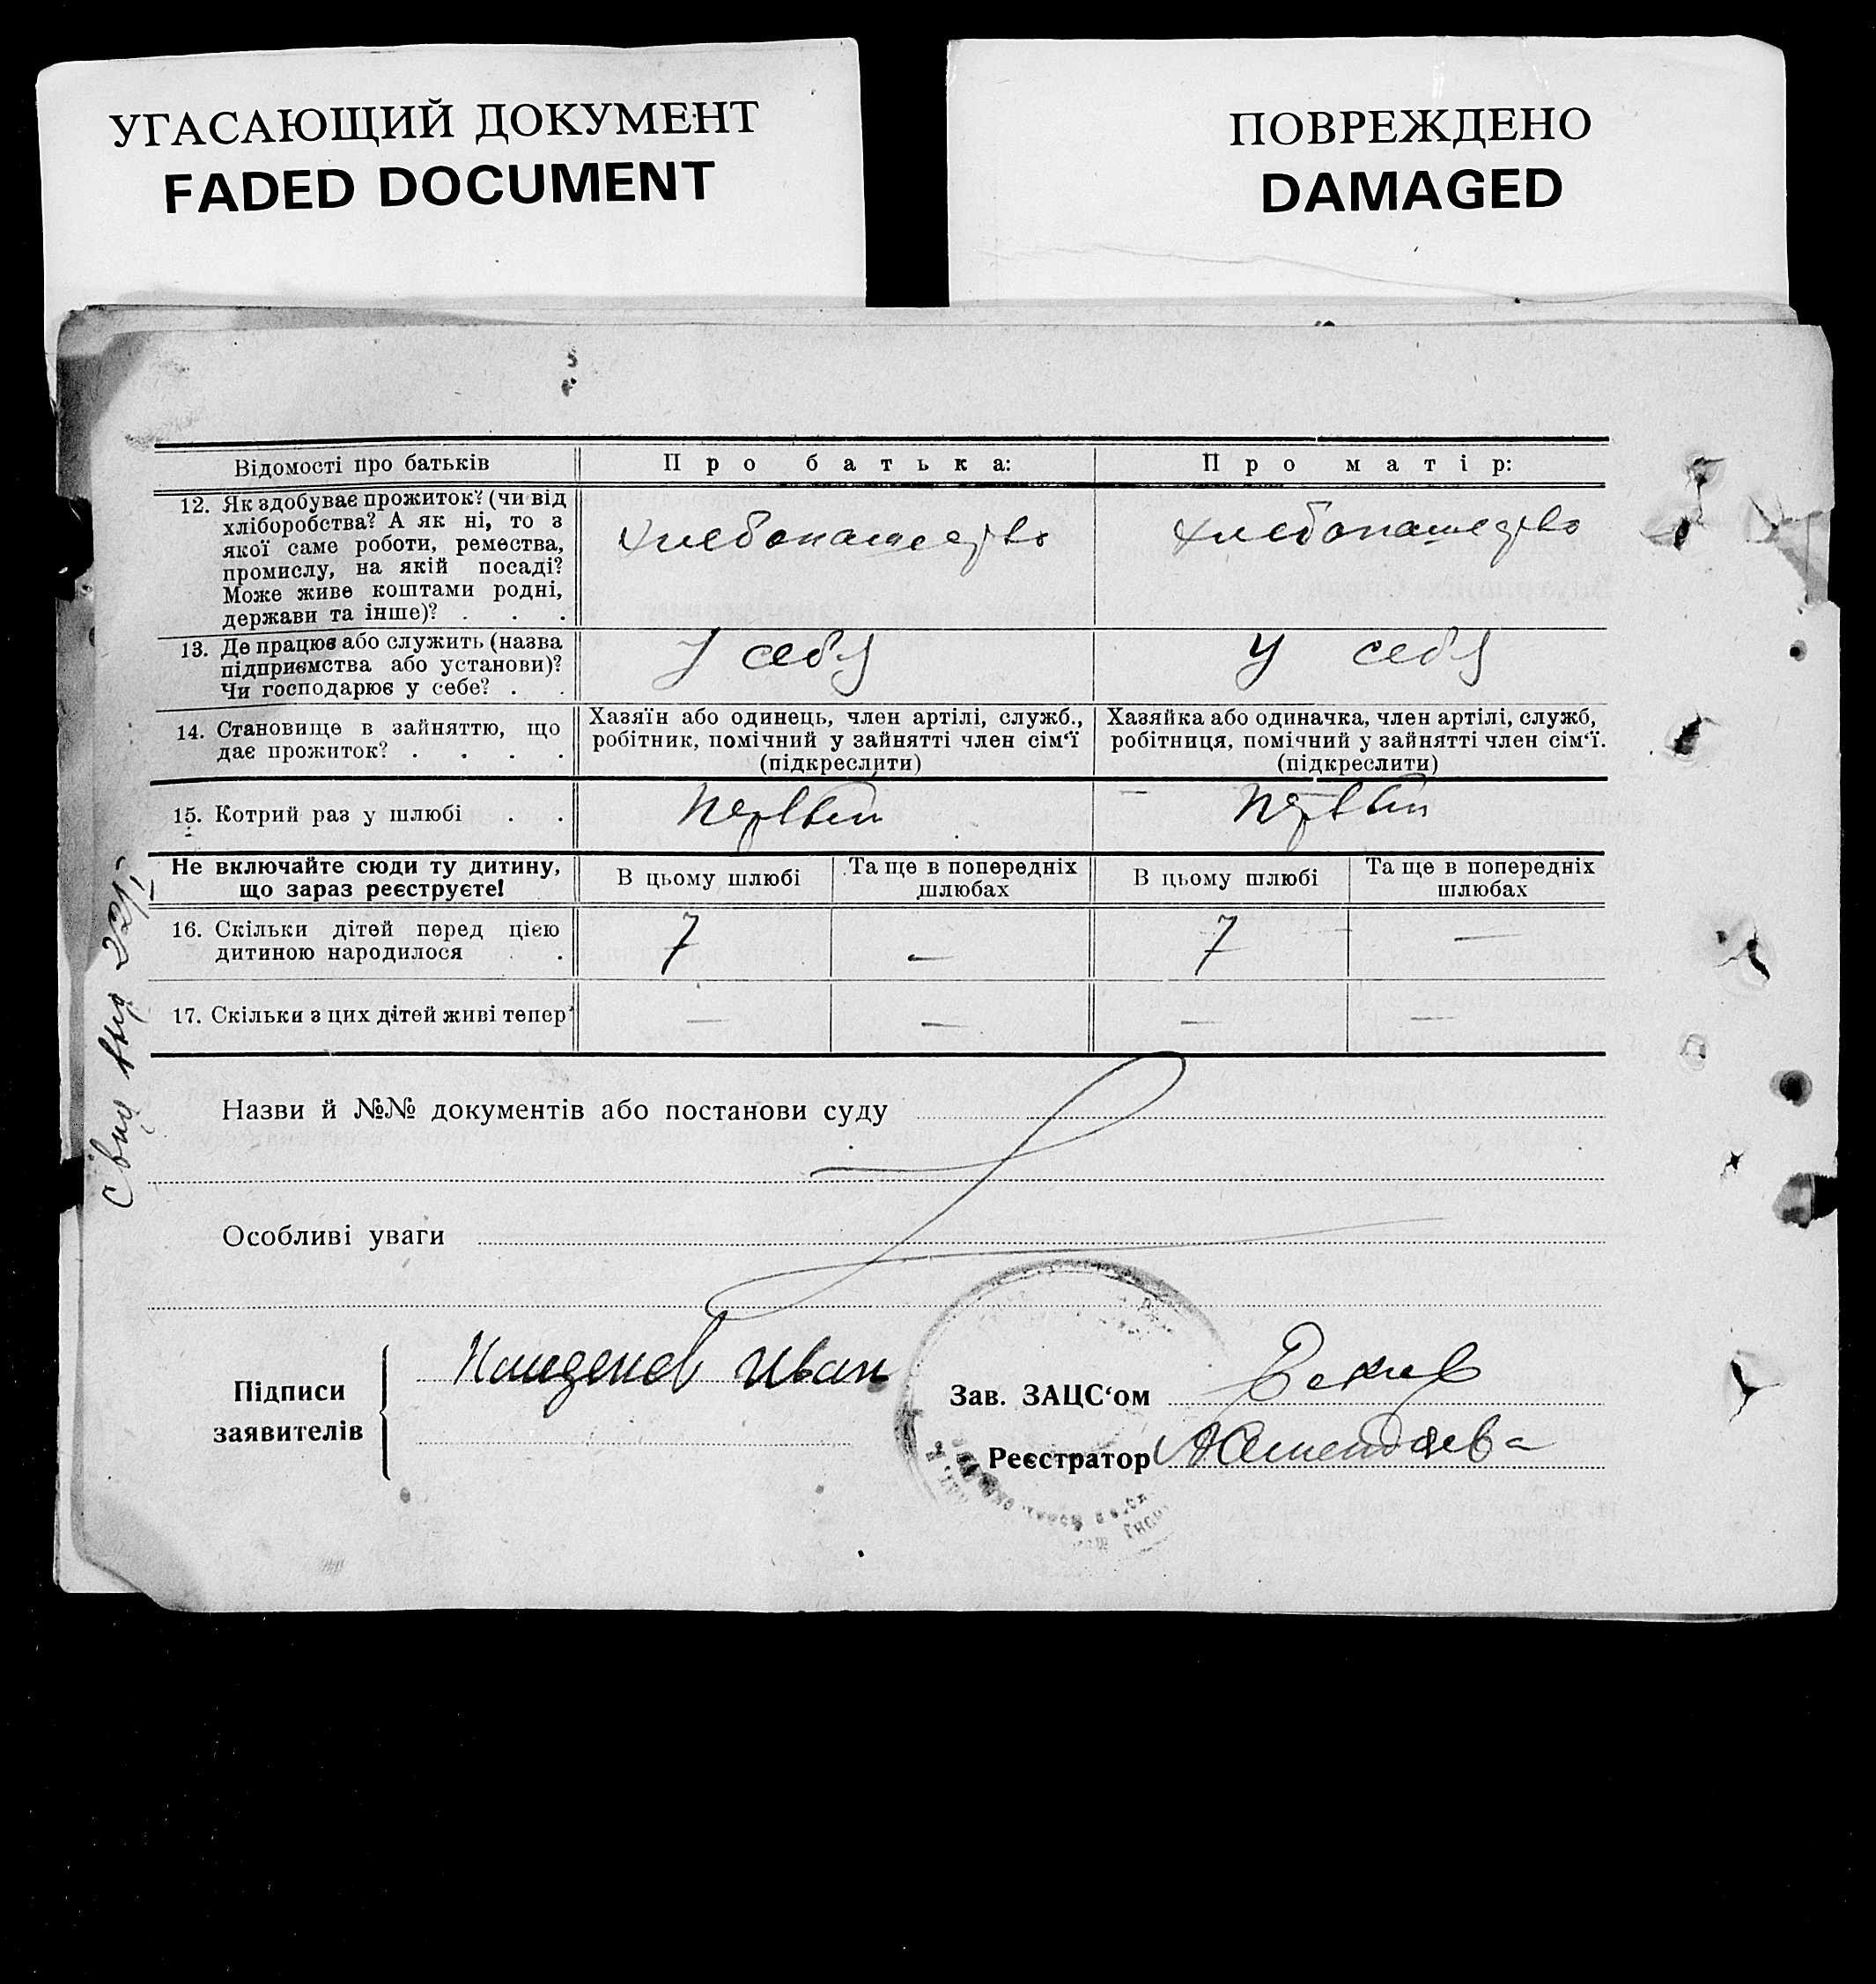 УГАСАЮЩИЙ ДОКУМЕНТ
FADED DOCUMENT
ПОВРЕЖДЕНО
DAMAGED
Відомості про батьків
Про батька:
Про матір:
12. Як здобуває прожиток? (чи від
хліборобства? А як ні, то з
якої саме роботи, ремества,
промислу, на якій посаді?
Може живе коштами родні,
держави та інше)? . . .
хлебопашество
хлебопашество
13. Де працює або служить (назва
підприємства або установи)?
Чи господарює у себе? . .
У себя
У себя
14. Становище в зайняттю, що
дає прожиток? . . . .
Хазяїн або одинець, член артілі, служб.,
робітник, помічний у зайнятті член сім‘ї
(підкреслити)
Хазяйка або одиначка, член артілі, служб,
робітниця, помічний у зайнятті член сім‘ї.
(підкреслити)
15. Котрий раз у шлюбі . .
первый
первый
Не включайте сюди ту дитину,
що зараз реєструєте!
В цьому шлюбі
Та ще в попередніх
шлюбах
В цьому шлюбі
Та ще в попередніх
шлюбах
16. Скільки дітей перед цією
дитиною народилося . .
7
—
7
—
17. Скільки з цих дітей живі тепер
—
—
—
—
Назви й №№ документів або постанови суду
Особливі уваги
Підписи
заявителів
Иван
Зав. ЗАЦС‘ом
Реєстратор